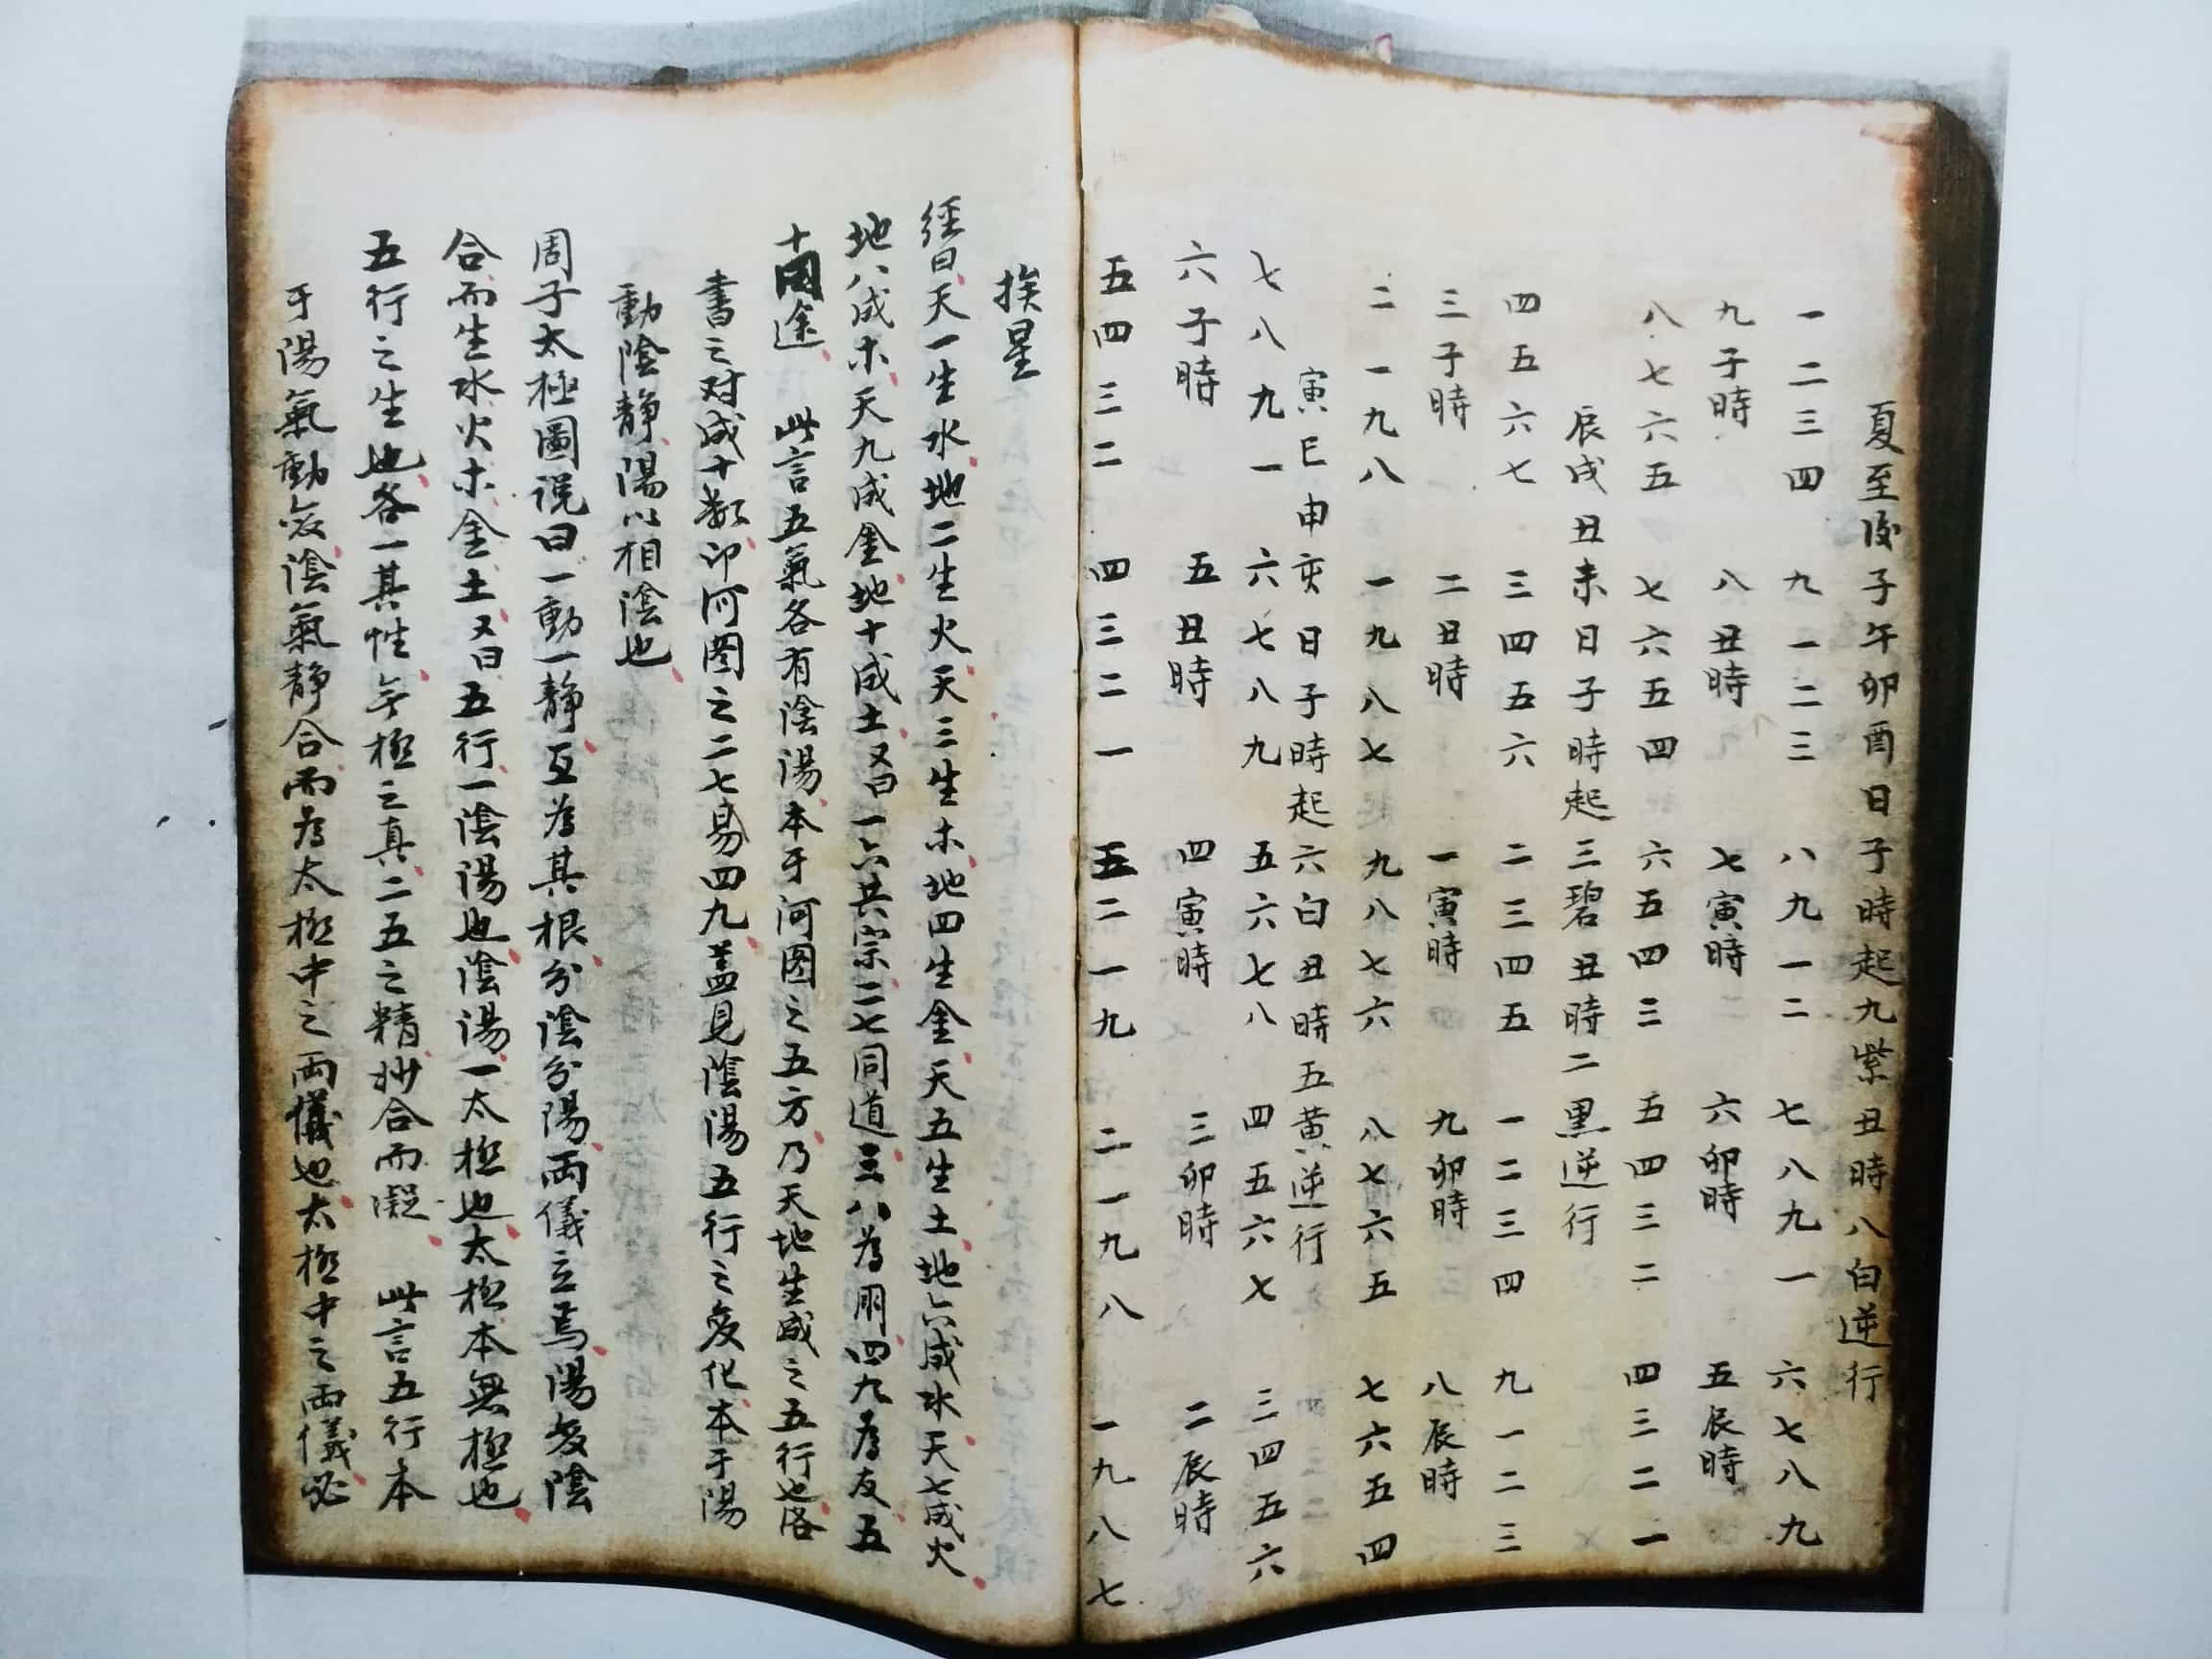 夏至後子午卯酉日子時起九紫丑時八白逆行
一二三四　九一二三　八九一二　七八九一　六七八九
九子時　八丑時　七寅時　六卯時　五辰時
八七六五　七六五四　六五四三　五四三二　四三二一
辰戌丑未日子時起三碧丑時二黑逆行
四五六七　三四五六　二三四五　一二三四　九一二三
三子時　二丑時　一寅時　九卯時　八辰時
二一九八　一九八七　九八七六　八七六五　七六五四
寅巳申亥日子時起六白丑時五黃逆行
七八九一　六七八九　五六七八　四五六七　三四五六
六子時　五丑時　四寅時　三卯時　二辰時
五四三二　四三二一　五二一九　二一九八　一九八七
挨星
經曰天一生水地二生火天三生木地四生金天五生土地六成水天七成火
地八成木天九成金地十成土又曰一六共宗二七同道三八為朋四九為友五
十同途　此言五氣各有陰陽本于河图之五方乃天地生成之五行也洛
書之对成十数卬河图之二七易四九蓋見陰陽五行之变化本于陽
動陰靜陽以相陰也
周子太極圖説曰一動一靜互為其根分陰分陽兩儀立焉陽变陰
合而生水火木金土又曰五行一陰陽也陰陽一太極也太極本無極也
五行之生也各一其性無極之真二五之精妙合而凝　此言五行本
于陽氣動变陰氣靜合而為太極中之兩儀也太極中之兩儀必